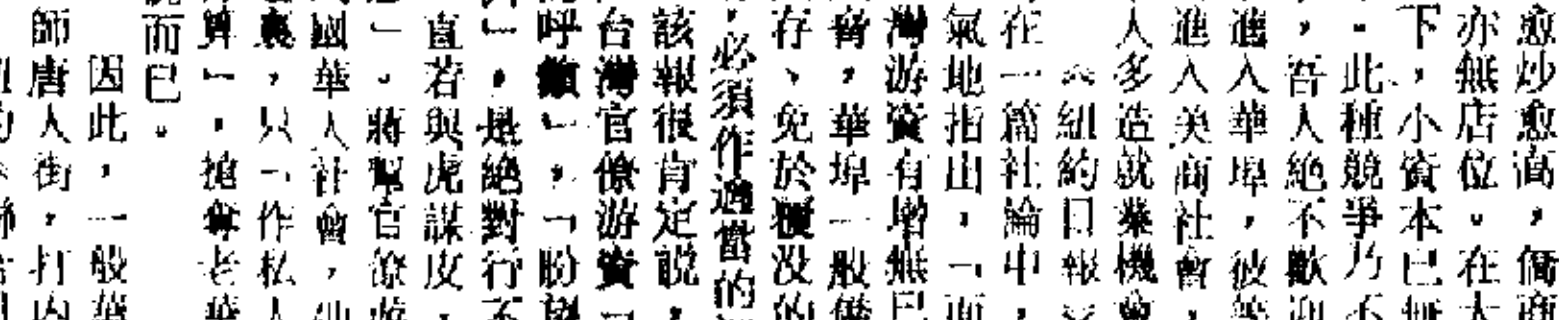 愈炒愈高，僑商
亦無店位。在大
下，小資本已無
。此種競爭乃不
，吾人絕不歡迎
進入華埠，彼等
進入美商社會，
人多造就業機會
《紐約日報》
在一篇社論中，
氣地指出，「而
灣游資有增無已
奮，華埠一般僑
存、免於覆沒的
，必須作適當的
該報很肯定說，
台灣官僚游資
呼籲」，「盼
」，是絕對行不
直若與虎謀皮，
」。蔣幫官僚游
國華人社會，他
裏，只「作私人
算」，搶奪老華
而已。
因此，一般華
師唐人街，打內